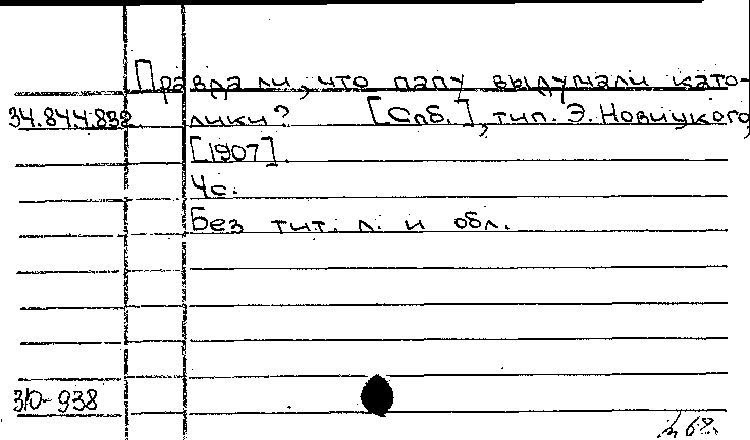 Правда ли, что папу выдумали като-
34.844.838 лики? [Спб.], тип. Э. Новицкого,
[1907].
4с.
Без тит. л. и обл.
310-938